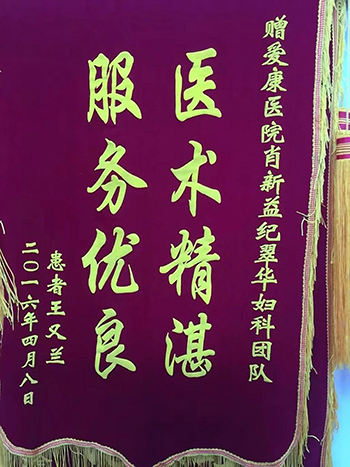 赠爱康医院肖新益纪翠华妇科团队
医术精湛
服务优良
患者王又兰
二〇一六年四月八日